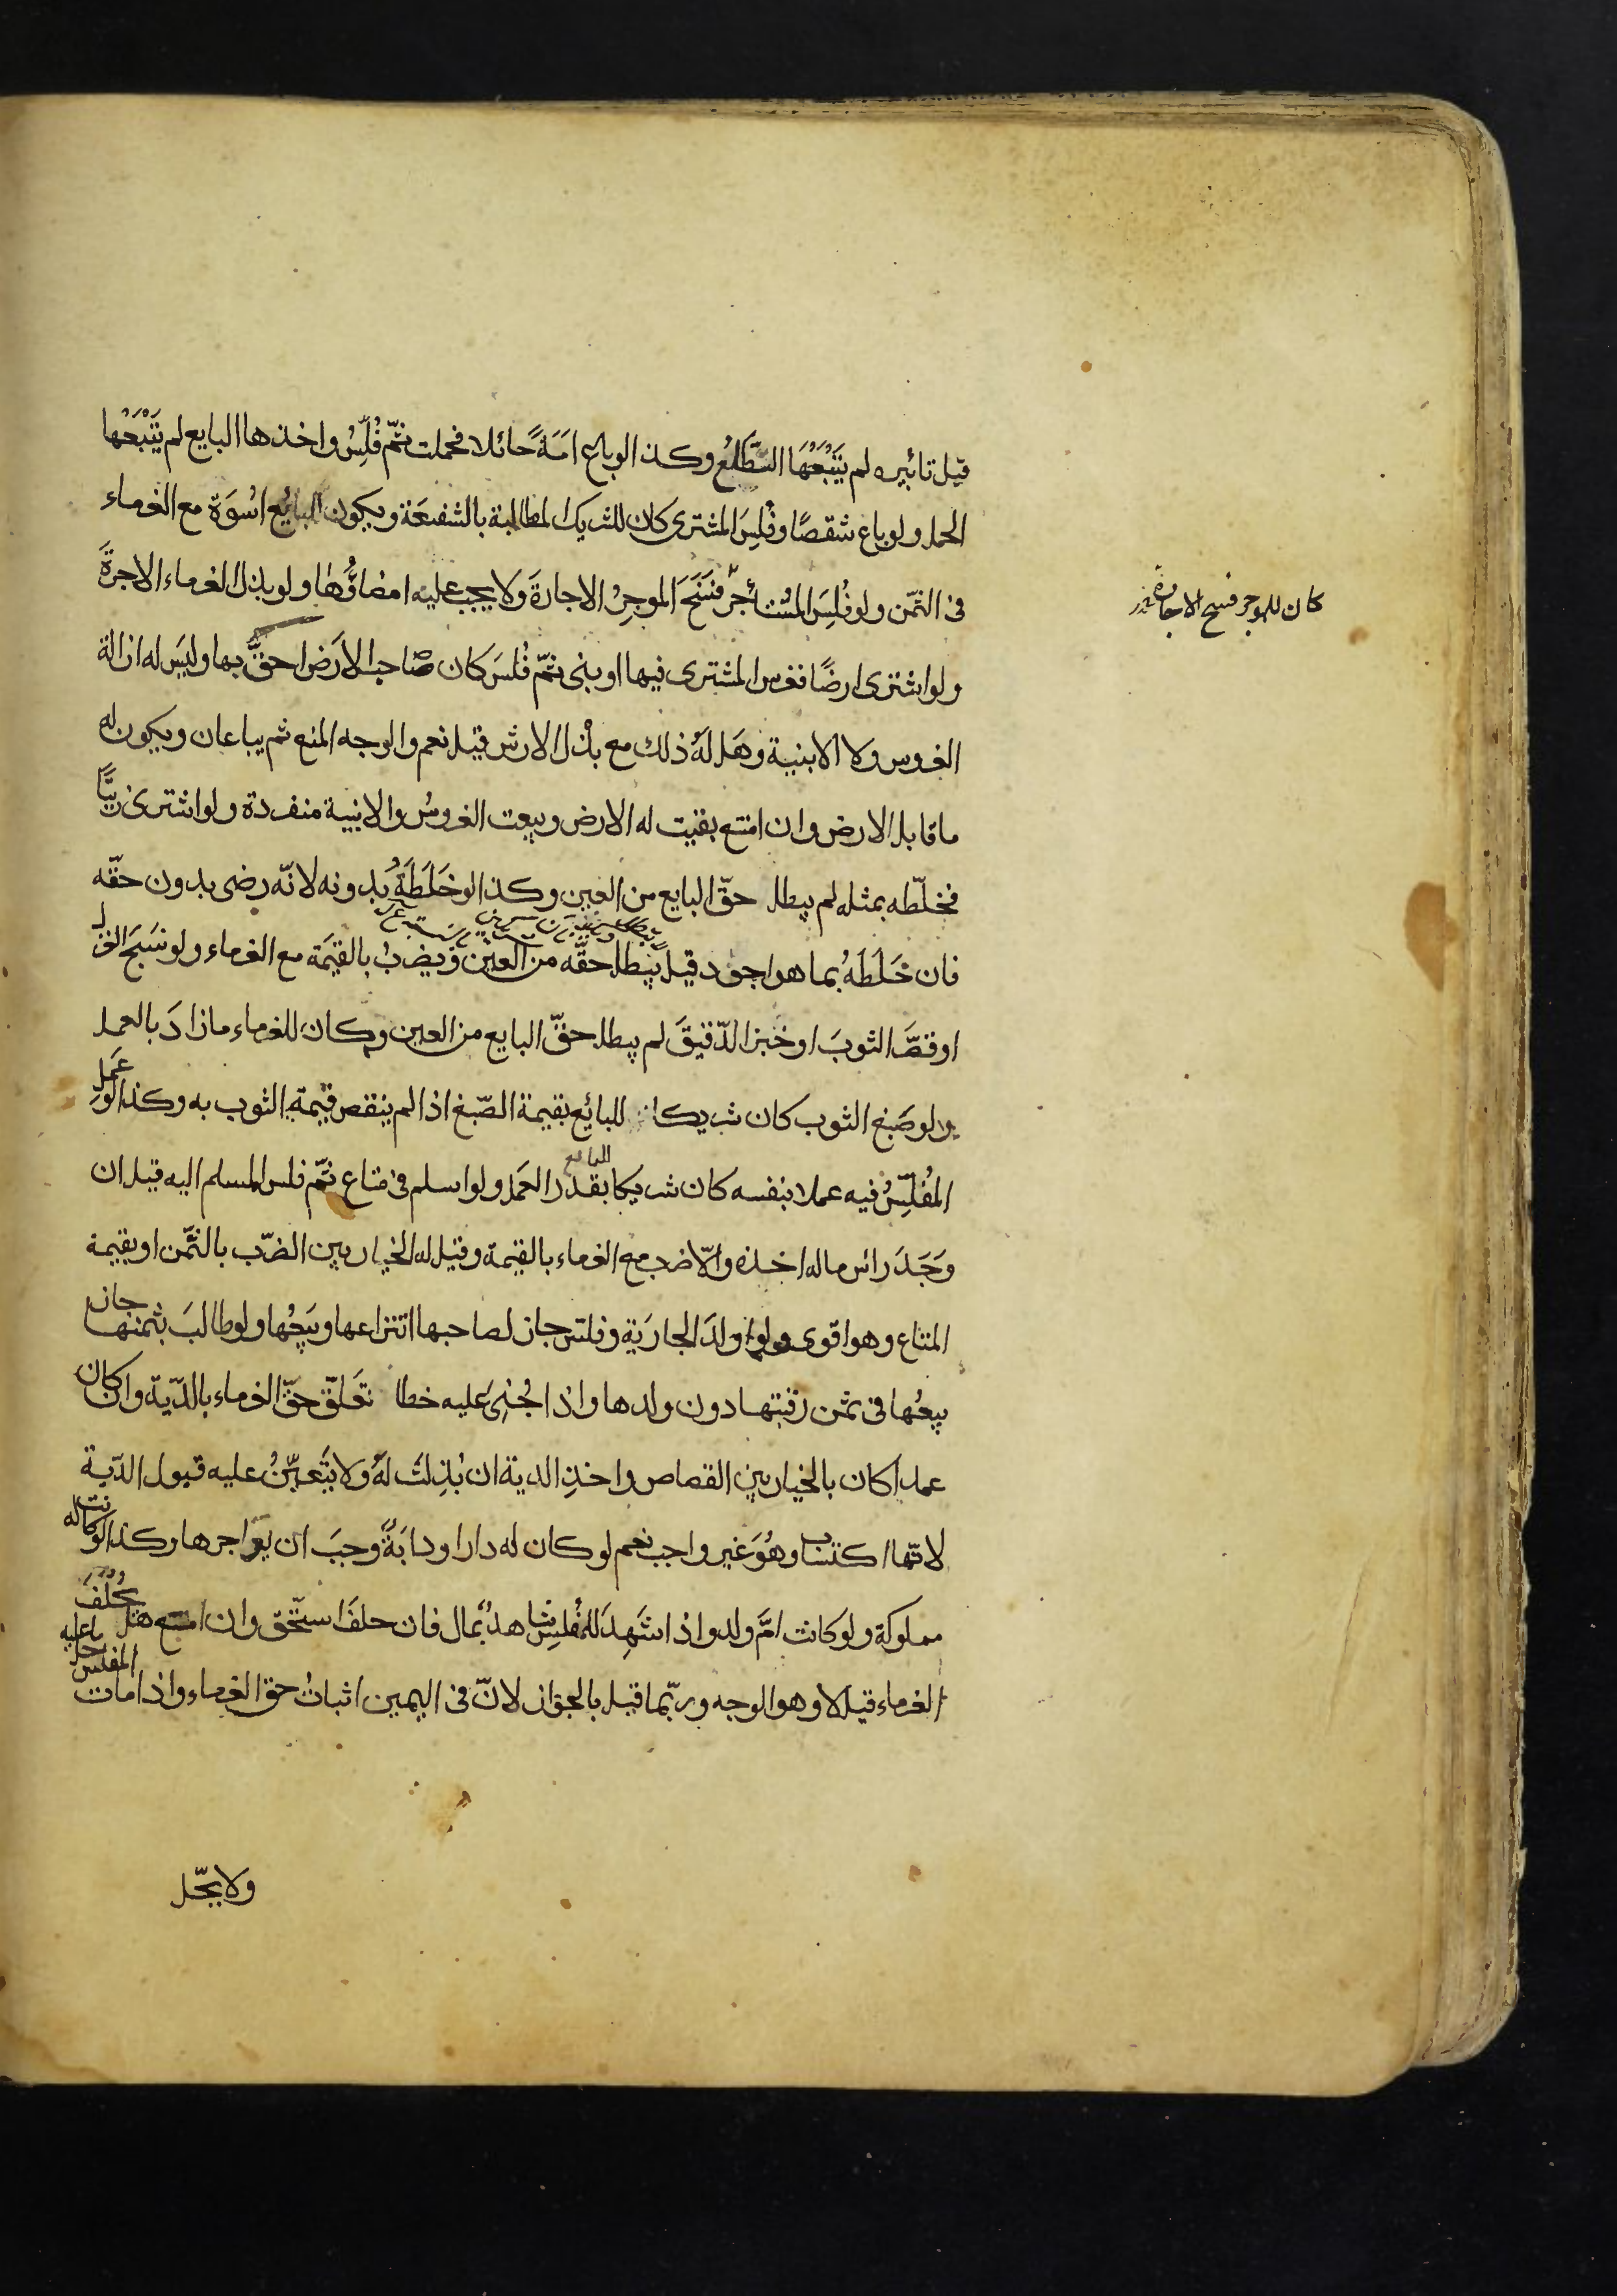 قبل تابيره لم يَتْبَعْهَا الطَّلعُ وكذا لو باع امَةً حائلا فحملت ثمّ فُلِّسَ واخذها البايع لم يَتْبَعْها
الحمل ولو باع شقصًا وفُلِسَ المشترى كان للشريك المطالبة بالشفعَة ويكون البائع اسْوَة مع الغرماء
فى الثمّن ولو فُلِسَ المُسْتأجرُ فَسَخَ الموجِرُ الاجارةَ ولا يجب عليه امضاؤُها ولو بذل الغرماء الاجرةَ
كان للموجر فسخ الاجارة
ولو اشترى ارضًا فغرس المشترى فيها او بنى ثمّ فُلسَ كان صَاحب الاَرض احقَّ بها وليَس له ازالة
الغروس ولا الابنية وهَل لَهُ ذلك مع بذْل الارش قيل نعم والوجه المنع ثم يباعان ويكون له
ما قابل الارض وان امتنع بقيت له الارض وبيعت الغروسُ والابنية منفردة ولو اشترى زيتًا
فخلّطه بمثله لم يبطل حقّ البايع من العين وكذا لو خَلَطَهُ بدونه لانّه رضى بدون حقّه
فان خَلَطَهُ بما هو اجود قيل يبطل حقّه من العين ويضربُ بالقيمَة مع الغرماء ولو نَسَجَ الغزل
او قصَّر الثوبَ او خبز الدّقيقَ لم يبطل حقّ البايع من العين وكان للغرماء ما زادَ بالعمل
ولو صَبغ الثوب كان شريكا للبائع بقيمة الصّبغ اذا لم ينقص قيمة الثوب به وكذا لو عَمل
المُفلِّسُ فيه عملا بنفسه كان شريكا البايع بقدر العمَل ولو اسلم فى متاع ثمّ فلس المسلم اليه قيل ان
وَجَدَ رائس ماله اخذه والّا ضرب مع الغرماء بالقيمة وقيل له الخيار بين الضرّب بالثمّن او بقيمة
المتاع وهو اقوى ولو اولدَ الجارَية وفلس جاز لصاحبها انتزاعها وبَيعُها ولو طالبَ بثمنها جاز
بيعُها فى ثمن رقبتها دون ولدها واذا جُنِىَ عَليه خطا تعَلّق حقّ الغرماء بالدّية وان كان
عمدا كان بالخيار بين القصاص واخذِ الدية ان بُذِلتْ لهُ ولا يَتَعيّنُ عليه قبول الدّية
لانّها اكتساب وهُوَ غير واجب نعم لو كان له دار او دابَةً وجبَ ان يواجرها وكذا لو كانت له
مملوكة ولو كانت امَّ ولد واذا شَهِدَ للمُفلِسِ شاهدٌ بمال فان حلفَ استحّق وان امتنع هل يُحَلّفُ
الغرماء قيل لا وهو الوجه وربّما قيل بالجواز لانّ فى اليمين اثباتُ حق الغرماء واذا مات المفلس حل ما عليه
ولا يحّل